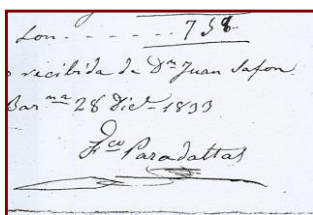 Son . . . . . . 758.
recibida de Dn Juan Safon.
Barna 28 Dice 1833
Fco Paradaltas